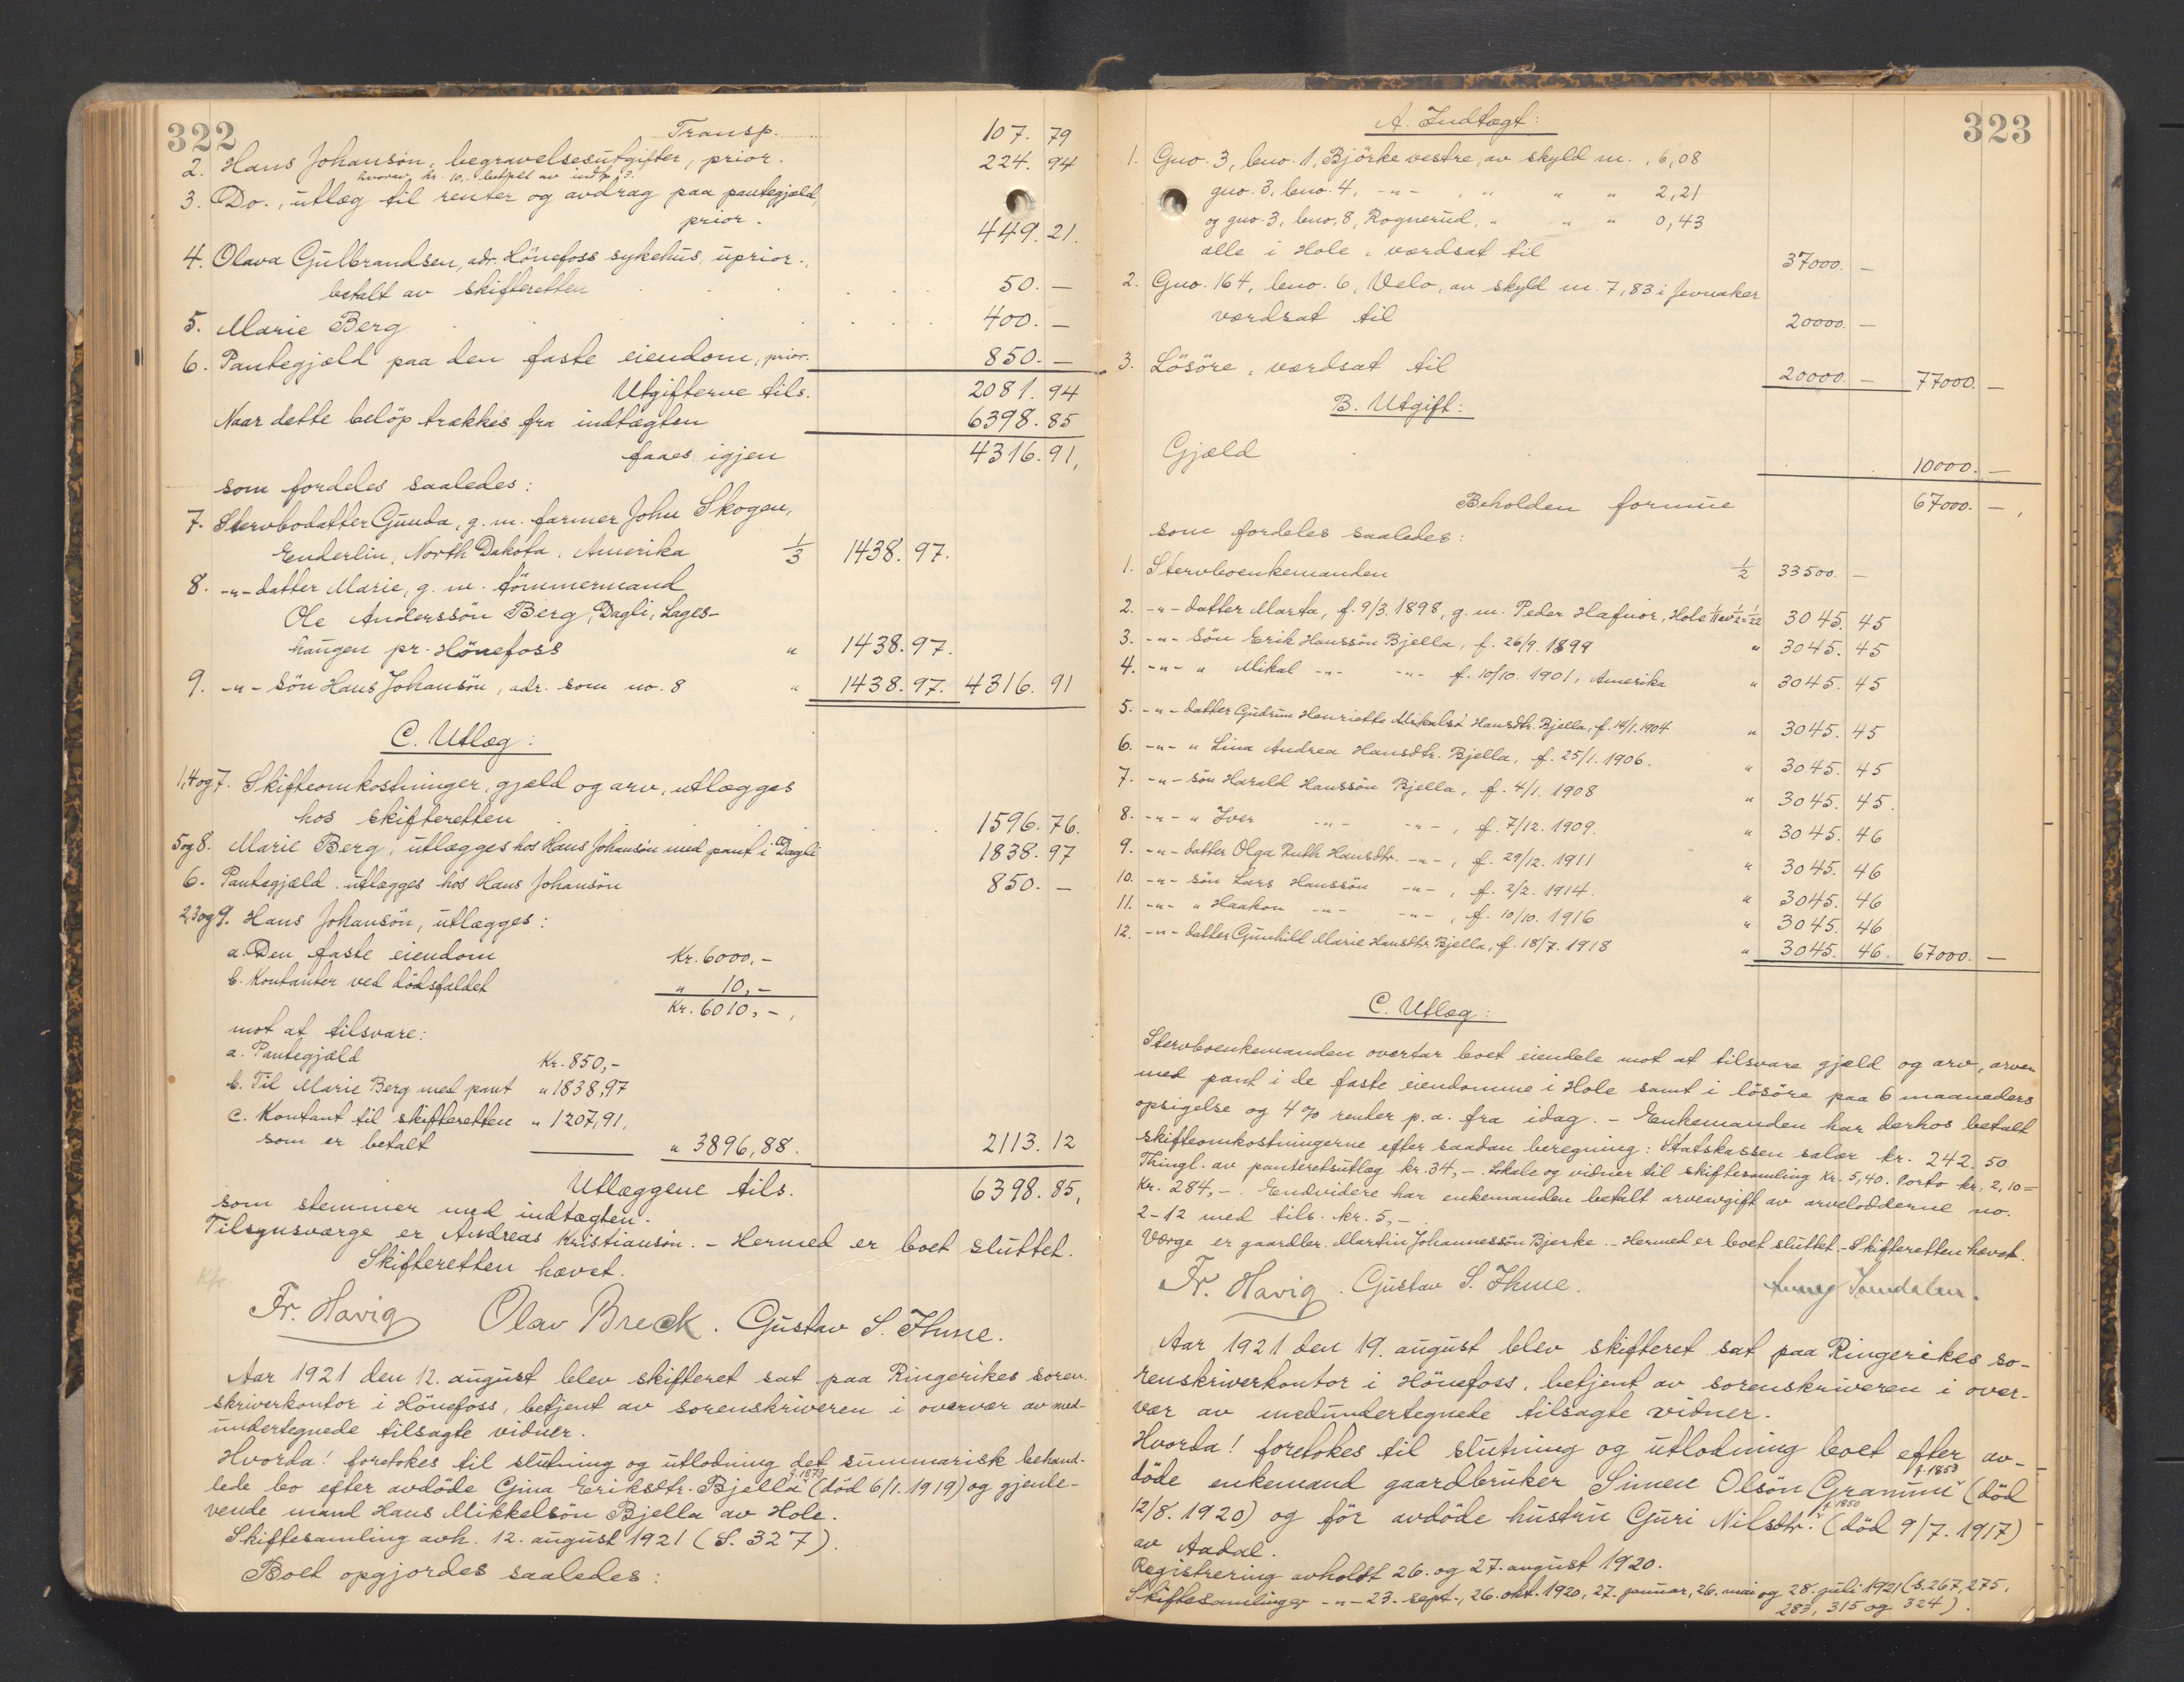 322
Transp. 107. 79
2. Hans Johansön, begravelsesutgifter, prior. 224. 94
hvorav kr. 10.- betalt av indt.
3. Do., utlæg til renter og avdrag paa pantegjæld,
prior. 449. 21.
4. Olava Gulbrandsen, adr. Hönefoss sykehus, uprior.,
betalt av skifteretten 50. —
5. Marie Berg 400. —
6. Pantegjæld paa den faste eiendom, prior. 850. —
Utgifterne tils. 2081. 94
Naar dette belöp trækkes fra indtægten 6398. 85
faaes igjen 4316. 91,
som fordeles saaledes:
7. Stervbodatter Gunda, g. m. farmer John Skogen,
Enderlin, North Dakota, Amerika 1/3 1438. 97.
8. -"- datter Marie, g. m. tömmermand
Ole Anderssön Berg, Dagli, Lages-
haugen pr. Hönefoss " 1438. 97.
9. -"- sön Hans Johansön, adr. som no. 8 " 1438. 97. 4316. 91
C. Utlæg:
1, 4 og 7. Skifteomkostninger, gjæld og arv, utlægges
hos skifteretten 1596. 76.
5 og 8. Marie Berg, utlægges hos Hans Johansön med pant i Dagli 1838. 97
6. Pantegjæld utlægges hos Hans Johansön 850. —
2, 3 og 9. Hans Johansön, utlægges:
a. Den faste eiendom Kr. 6000,-
b. Kontanter ved dödsfaldet " 10,-
Kr. 6010,-,
mot at tilsvare:
a. Pantegjæld Kr. 850,-
b. Til Marie Berg med pant " 1838,97
c. Kontant til skifteretten " 1207,91,
som er betalt " 3896,88. 2113. 12
Utlæggene tils. 6398. 85,
som stemmer med indtægten.
Tilsynsværge er Andreas Kristiansön. - Hermed er boet sluttet.
Skifteretten hævet.
Kfr.
Fr. Havig Olav Breck. Gustav S. Ihme.
Aar 1921 den 12. august blev skifteret sat paa Ringerikes soren-
skriverkontor i Hönefoss, betjent av sorenskriveren i overvær av med-
undertegnede tilsagte vidner.
Hvorda! foretokes til slutning og utlodning det summarisk behand-
f. 1873
lede bo efter avdöde Gina Eriksdtr. Bjella (död 6/1. 1919) og gjenle-
vende mand Hans Mikkelsön Bjella av Hole.
Skiftesamling avh. 12. august 1921 (S. 327).
Boet opgjordes saaledes:
323
A. Indtægt:
1. Gno. 3, bno. 1, Björke vestre, av skyld m. 6,08
gno. 3, bno. 4, -"- " " " 2,21
og gno. 3, bno. 8, Rognerud, " " " 0,43
alle i Hole, værdsat til 37000. —
2. Gno. 164, bno. 6, Velo, av skyld m. 7,83 i Jevnaker
værdsat til 20000. —
3. Lösöre, værdsat til 20000. — 77000. —
B. Utgift:
Gjæld 10000. —
Beholden formue 67000. —,
som fordeles saaledes:
1. Stervboenkemanden 1/2 33500. —
2. -"- datter Marta, f. 9/3. 1898, g. m. Peder Hafnor, Hole 1/11 av 1/2 = 1/22 3045. 45
3. -"- sön Erik Hanssön Bjella, f. 26/9. 1899 " 3045. 45
4. -"- " Mikal -"- -"- f. 10/10. 1901, Amerika " 3045. 45
5. -"- datter Gudrun Henriette Mikalse Hansdtr. Bjella, f. 14/1. 1904 " 3045. 45
6. -"- " Lina Andrea Hansdtr. Bjella, f. 25/1. 1906. " 3045. 45
7. -"- sön Harald Hanssön Bjella, f. 4/1. 1908 " 3045. 45.
8. -"- " Iver -"- -"-, f. 7/12. 1909. " 3045. 46
9. -"- datter Olga Ruth Hansdtr. -"-, f. 29/12. 1911 " 3045. 46
10. -"- sön Lars Hanssön -"-, f. 2/2. 1914. " 3045. 46
11. -"- " Haakon -"- -"-, f. 10/10. 1916 " 3045. 46
12. -"- datter Gunhild Marie Hansdtr. Bjella, f. 18/7. 1918 " 3045. 46. 67000. —
C. Utlæg:
Stervboenkemanden overtar boet eiendele mot at tilsvare gjæld og arv, arven
med pant i de faste eiendomme i Hole samt i lösöre paa 6 maaneders
opsigelse og 4 % renter p. a. fra idag. - Enkemanden har derhos betalt
skifteomkostningerne efter saadan beregning: Statskassen salær kr. 242. 50
Thingl. av panteretsutlæg kr. 34,-. Lokale og vidner til skiftesamling Kr. 5,40. Porto kr. 2,10 =
Kr. 284,-. Endvidere har enkemanden betalt arveavgift av arvelodderne no.
2-12 med tils. kr. 5,-
Værge er gaardbr. Martin Johannessön Bjerke. - Hermed er boet sluttet. - Skifteretten hævet.
Fr. Havig. Gustav S. Ihme.
Aar 1921 den 19. august blev skifteret sat paa Ringerikes so-
renskriverkontor i Hönefoss, betjent av sorenskriveren i over-
vær av medundertegnede tilsagte vidner.
Hvorda! foretokes til slutning og utlodning boet efter av-
f. 1853
döde enkemand gaardbruker Simen Olsön Gramum (död
f. 1850
12/8. 1920) og för avdöde hustru Guri Nilsdtr. (död 9/7. 1917)
av Aadal.
Registrering avholdt 26. og 27. august 1920.
Skiftesamlinger -"- 23. sept., 26. okt. 1920, 27. januar, 26. mai og 28. juli 1921 (S. 267, 275,
283, 315 og 324).